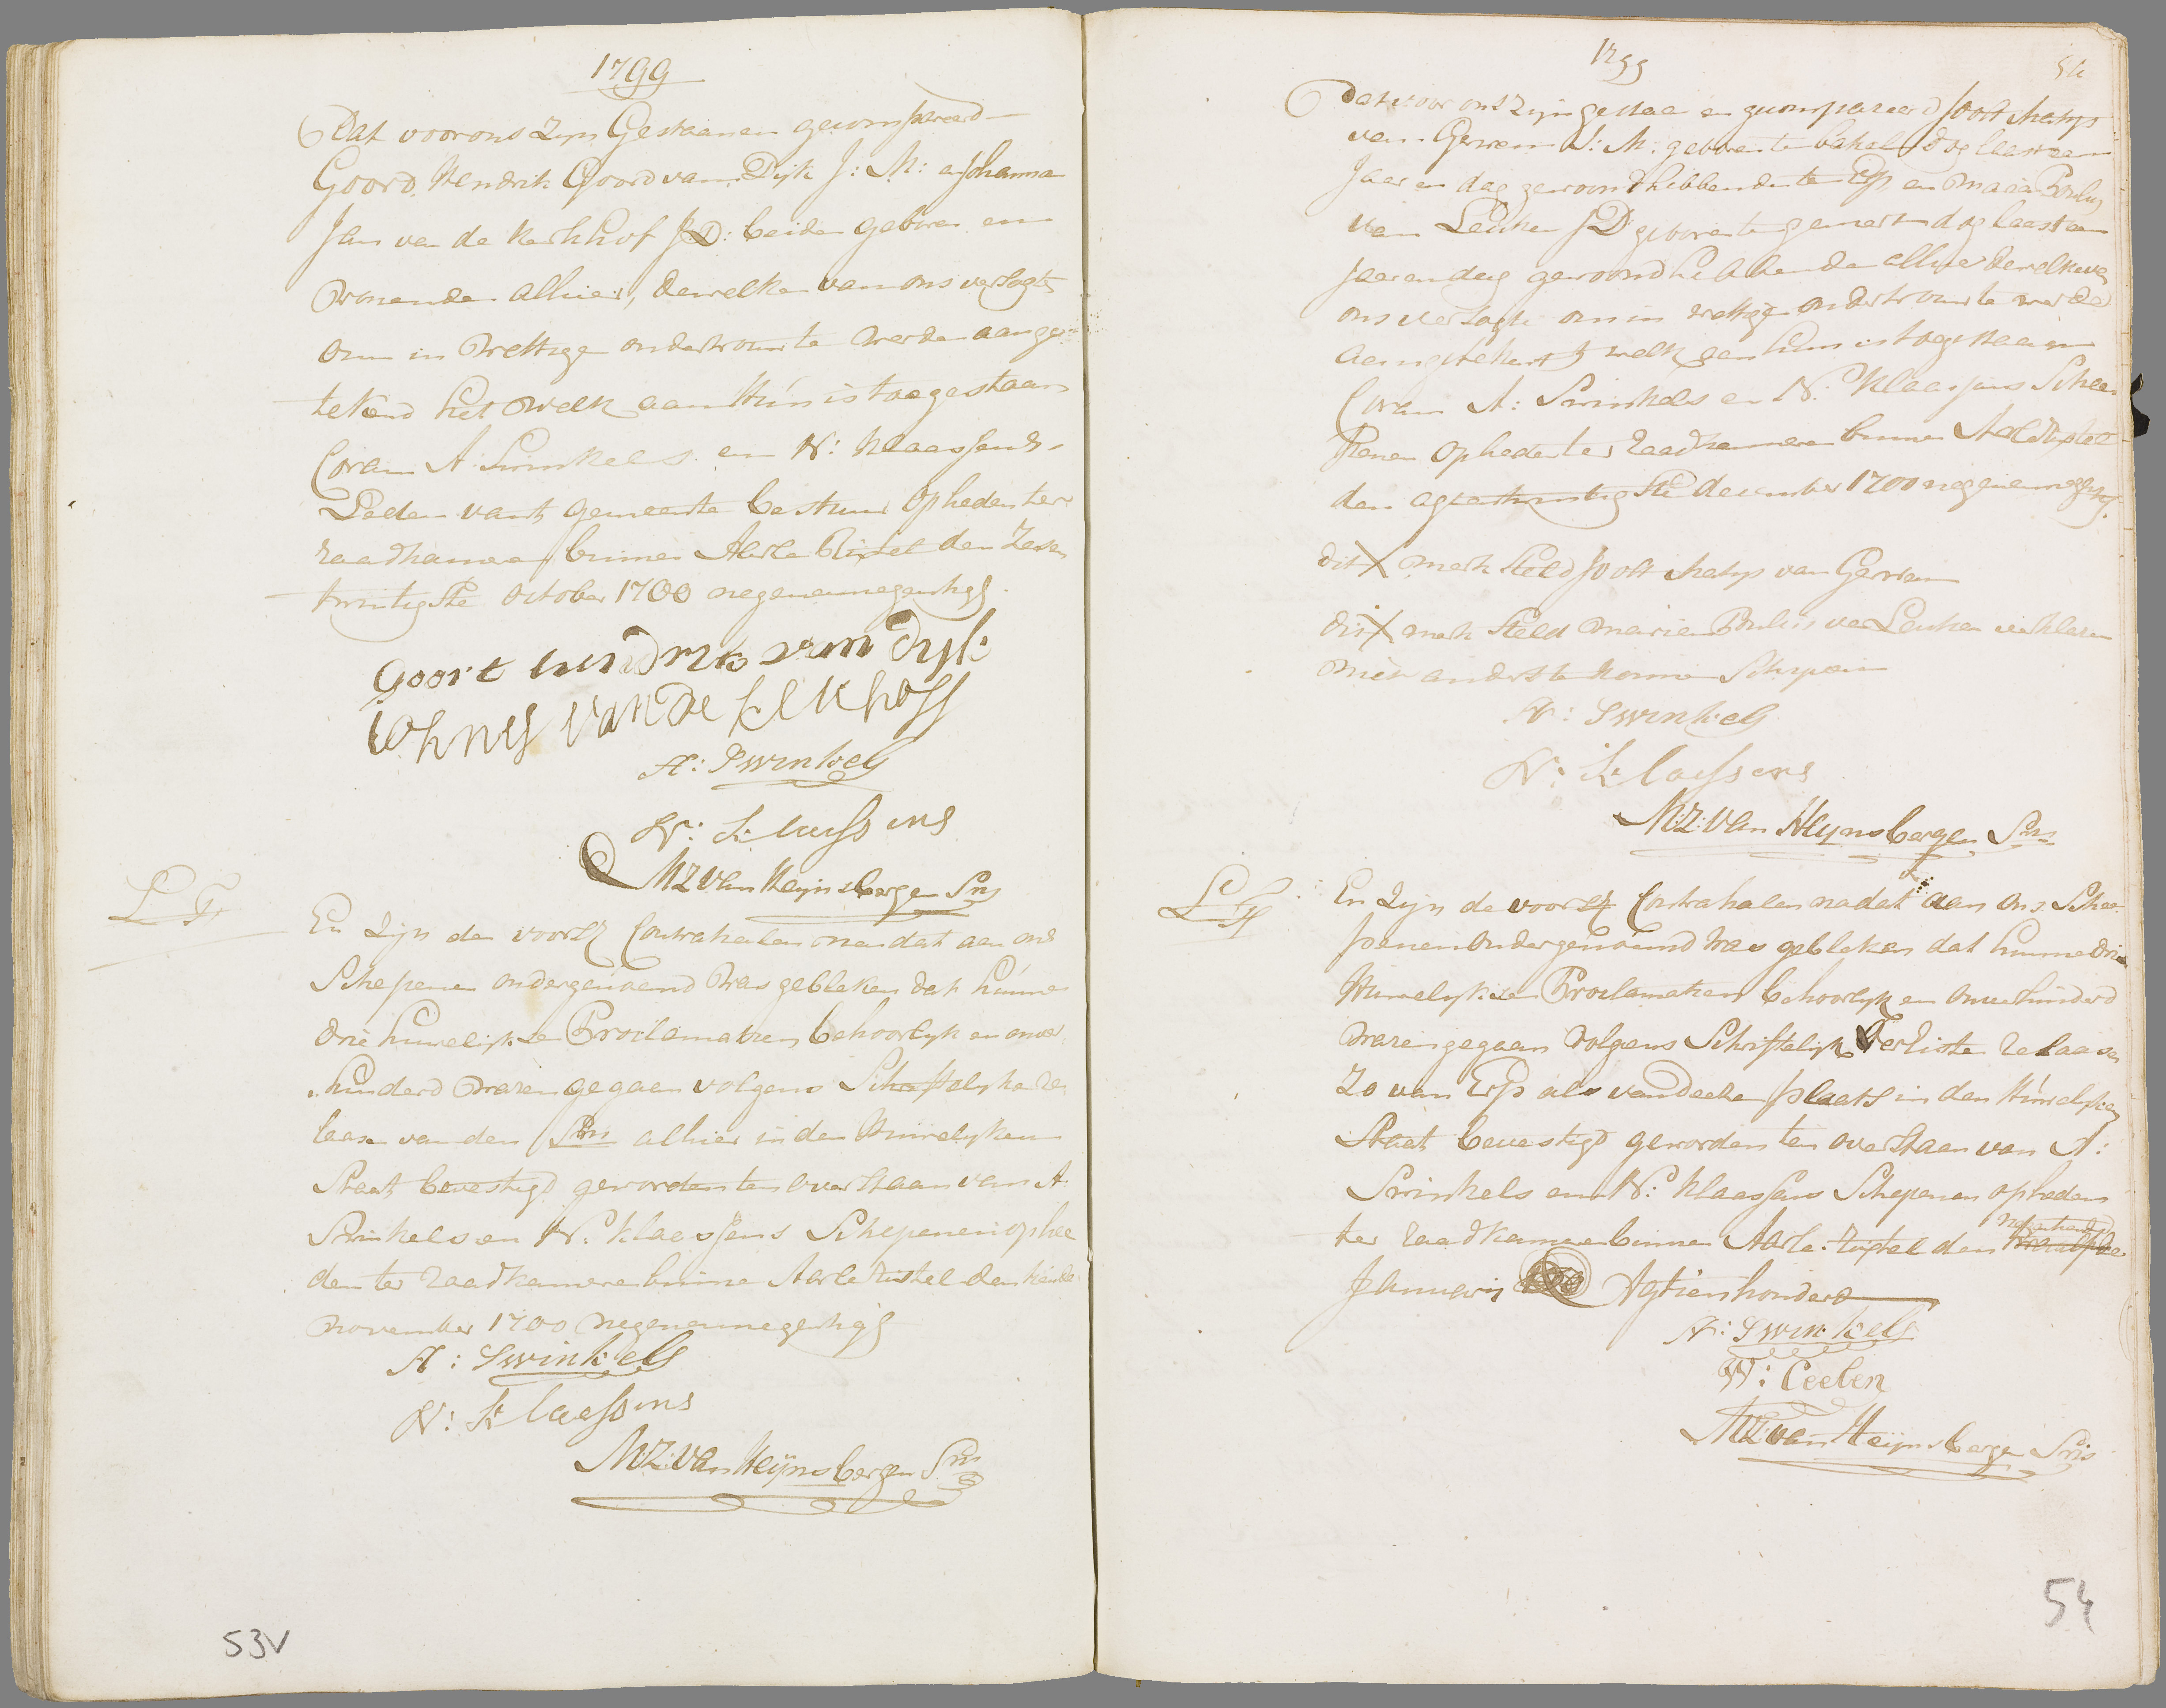 1799
Dat voor ons Zyn Gestaan en gecompareerd
Goord Hendrik Goord van Dijk J: M: en Johanna
Jan van de Kerkhof J D: beiden geboren en
Wonende alhier, dewelke van ons versogte
om in Wettige ondertrouw te werden aange
tekend het Welk aan Hun is toegestaan
Coram A Swinkels en N: Klaassens
Leden van't gemeente bestuur op heden ter
raadkamer binnen Aerle Rixtel den Zesen
twintigste October 1700 negenennegentigh
Goort hendrik van dijk
van de kerkhoff
A: Swinkels
N: Klaassens
MZ van Heijnsbergen Sris
L G
En Zijn de voorsz Contrahalen na dat aan ons
Schepenen ondergenoemd Was gebleken dat hunne
drie huwelijkse Proclamatien behoorlyk en onver
hinderd waren gegaan volgens Schriftelyke re
laase van den Sris alhier in den Huwelyken
Staat bevestigd geworden ten overstaan van A.
Swinkels en N: Klaassens Schepenen op hee
den ter raadkamere binne Aarle Rixtel den tiende
November 1700 negenennegentigh
A: Swinkels
N: Klaessens
MZ: van Heijnsbergen Sris
53V
1799
54
Dat voor ons Zijn gestaan en gecompareerd Joost Matys
van Gerwen J: M: geboren te bakel dog laast een
Jaar en dag gewoond hebbende te Erp en Maria Paulus
van Leuken J D geboren te gemert dog laast een
Jaar en dag gewoond hebbende alhier dewelke van
ons versogte om in wettige ondertrouw te werde
aangetekent t welk aan hun is toegestaan
Coram A: Swinkels en N: Klaassens Schee
penen op heden ter raadkamere binnen Aerle Rixtel
den agt en twintigste december 1700 negenennegentigh
dit X merk steld Joost Matys van Gerwen
dit X merk steld Maria Paulus van Leuken verklaren
niet anders te konnen Schryven
A: Swinkels
N: Klaessens
M:Z: van Heijnsbergen Sris
L G
En Zijn de voorsz Contrahalen nadat aan ons Schee
penen ondergenoemd was gebleken dat hunne drie
Huwelykse Proclamatien behoorlyk en onverhinderd
waren gegaan volgens Schriftelyke relaase
Zo van Erp als van deeze plaats in den Huwelyken
Staat bevestigd geworden ten overstaan van A:
Swinkels en N: Klaassens Schepenen op heden
ter raadkamere binnen Aarle-Rixtel den
January Agtienhonderd
A: Swinkels
W: Ceelen
MZ van Heijnsberge Sris
54